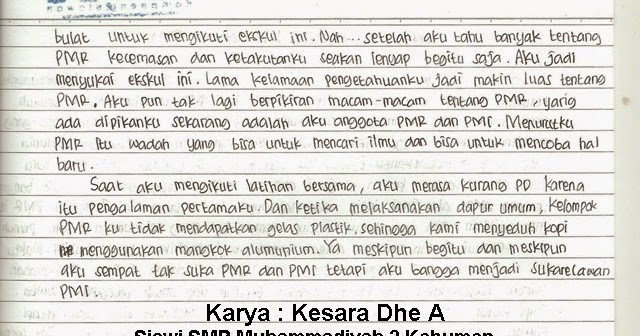 bulat untuk mengikuti ekskul ini. Nah... setelah aku tahu banyak tentang
PMR kecemasan dan ketakutanku seakan lenyap begitu saja. Aku jadi
menyukai ekskul ini. Lama kelamaan pengetahuanku jadi makin luas tentang
PMR. Aku pun tak lagi berpikiran macam-macam tentang PMR, yang
ada dipikanku sekarang adalah aku anggota PMR dan PMI. Menurutku
PMR itu wadah yang bisa untuk mencari ilmu dan bisa untuk mencoba hal
baru.
Saat aku mengikuti latihan bersama, aku merasa kurang PD karena
itu pengalaman pertamaku. Dan ketika melaksanakan dapur umum, kelompok
PMR ku tidak mendapatkan gelas plastik, sehingga kami menyeduh kopi
menggunakan mangkok alumunium. Ya meskipun begitu dan meskipun
aku sempat tak suka PMR dan PMI tetapi aku bangga menjadi sukarelawan
PMI.
Karya : Kesara Dhe A
Siswi SMP Muhammadiyah 2 Kahuman